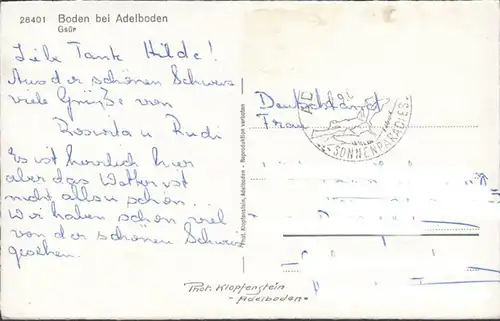 28401 Boden bei Adelboden
Gsür
Liebe Tante Hilde!
Aus der schönen Schweiz
viele Grüße von
Roswita u Rudi
Es ist herrlich hier
aber das Wetter ist
nicht allzu schön..
Wir haben schon viel
von der schönen Schweiz
gesehen.
Phot. Klopfenstein, Adelboden - Reproduktion verboten
Deutschland
Frau
SONNENPARADIES
Phot. Klopfenstein
- Adelboden -